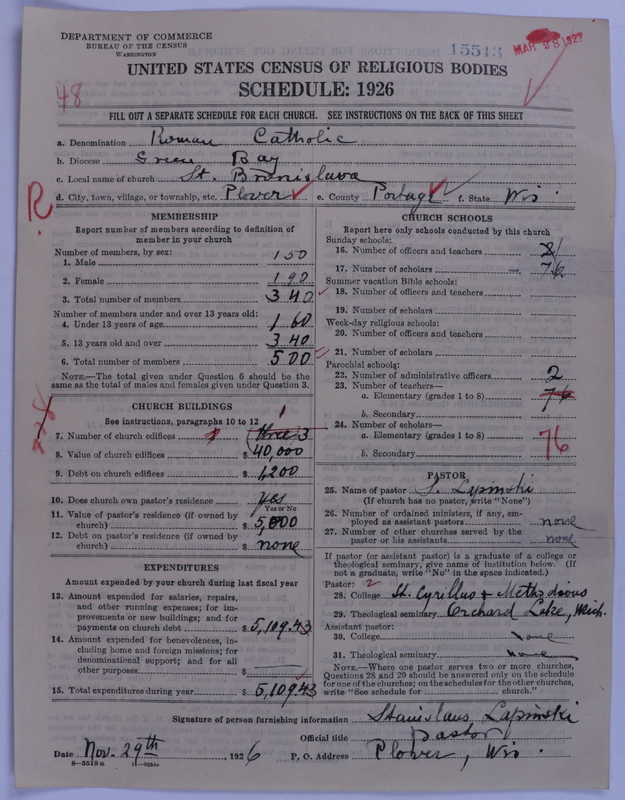 DEPARTMENT OF COMMERCE
BUREAU OF THE CENSUS
WASHINGTON
15513
MAR 28 1927
UNITED STATES CENSUS OF RELIGIOUS BODIES
SCHEDULE: 1926
48
FILL OUT A SEPARATE SCHEDULE FOR EACH CHURCH. SEE INSTRUCTIONS ON THE BACK OF THIS SHEET
a. Denomination Roman Catholic
b. Diocese Green Bay
c. Local name of church St. Bronislava
d. City, town, village, or township, etc. Plover e. County Portage f. State Wis.
R.
MEMBERSHIP
Report number of members according to definition of
member in your church
Number of members, by sex:
1. Male 150
2. Female 190
3. Total number of members 340
Number of members under and over 13 years old:
4. Under 13 years of age 160
5. 13 years old and over 340
6. Total number of members 500
NOTE.—The total given under Question 6 should be the
same as the total of males and females given under Question 3.
CHURCH BUILDINGS
See instructions, paragraphs 10 to 12
1
7. Number of church edifices three 3
8. Value of church edifices $40,000
9. Debt on church edifices $1,200
10. Does church own pastor's residence yes
Yes or No
11. Value of pastor's residence (if owned by
church) $5,000
12. Debt on pastor's residence (if owned by
church) $ none
EXPENDITURES
Amount expended by your church during last fiscal year
13. Amount expended for salaries, repairs,
and other running expenses; for im-
provements or new buildings; and for
payments on church debt $5,109.43
14. Amount expended for benevolences, in-
cluding home and foreign missions; for
denominational support; and for all
other purposes $
15. Total expenditures during year $5,109.43
CHURCH SCHOOLS
Report here only schools conducted by this church
Sunday schools:
16. Number of officers and teachers 2
17. Number of scholars 76
Summer vacation Bible schools:
18. Number of officers and teachers
19. Number of scholars
Week-day religious schools:
20. Number of officers and teachers
21. Number of scholars
Parochial schools:
22. Number of administrative officers 2
23. Number of teachers—
a. Elementary (grades 1 to 8) 76
b. Secondary
24. Number of scholars—
a. Elementary (grades 1 to 8) 76
b. Secondary
PASTOR
25. Name of pastor S. Lapinski
(If church has no pastor, write "None")
26. Number of ordained ministers, if any, em-
ployed as assistant pastors none
27. Number of other churches served by the
pastor or his assistants none
If pastor (or assistant pastor) is a graduate of a college or
theological seminary, give name of institution below. (If
not a graduate, write "No" in the space indicated.)
Pastor: 2
28. College St. Cyrillus & Methodious
29. Theological seminary Orchard Lake, Mich.
Assistant pastor:
30. College none
31. Theological seminary none
NOTE.—Where one pastor serves two or more churches,
Questions 28 and 29 should be answered only on the schedule
for one of the churches; on the schedules for the other churches,
write "See schedule for church."
Signature of person furnishing information Stanislaus Lapinski
Official title pastor
Date Nov. 29th, 1926 P. O. Address Plover, Wis.
8—5518a